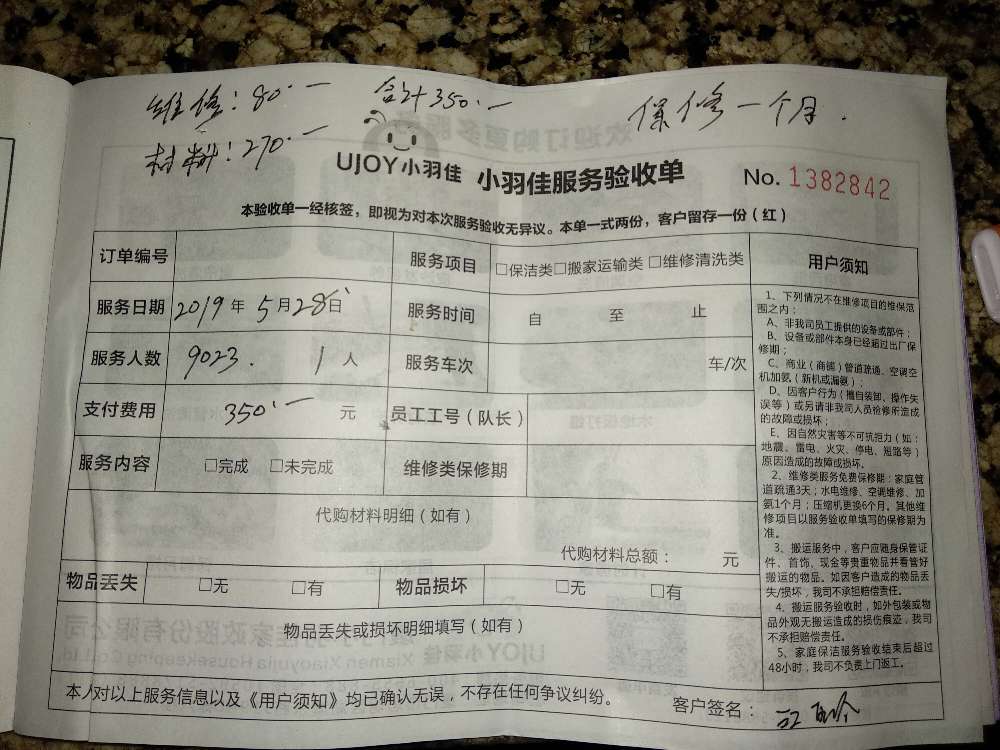 维修:80.一 合计350.一 保修一个月.
材料:270.一
UJOY小羽佳 小羽佳服务验收单 No. 1382842
本验收单一经核签，即视为对本次服务验收无异议。本单一式两份，客户留存一份（红）
订单编号 服务项目 □保洁类□搬家运输类 □维修清洗类
服务日期 2019年 5月28日 服务时间 自 至 止
服务人数 9023. 1人 服务车次 车/次
支付费用 350.一 元 员工工号（队长）
服务内容 □完成 □未完成 维修类保修期
代购材料明细（如有）
代购材料总额： 元
物品丢失 □无 □有 物品损坏 □无 □有
物品丢失或损坏明细填写（如有）
本人对以上服务信息以及《用户须知》均已确认无误，不存在任何争议纠纷。 客户签名：
用户须知
1、下列情况不在维修项目的维保范
围之内：
A、非我司员工提供的设备或部件；
B、设备或部件本身已经超过出厂保
修期；
C、商业（商铺）管道疏通、空调空
机加氨（新机或漏氨）；
D、因客户行为（擅自装卸、操作失
误等）或另请非我司人员检修所造成
的故障或损坏；
E、因自然灾害等不可抗拒力（如：
地震、雷电、火灾、停电、短路等）
原因造成的故障或损坏。
2、维修类服务免费保修期：家庭管
道疏通3天；水电维修、空调维修、加
氨1个月；压缩机更换6个月。其他维
修项目以服务验收单填写的保修期为
准。
3、搬运服务中，客户应随身保管证
件、首饰、现金等贵重物品并看管好
搬运的物品。如因客户造成的物品丢
失/损坏，我司不承担赔偿责任。
4、搬运服务验收时，如外包装或物
品外观无搬运造成的损伤痕迹，我司
不承担赔偿责任。
5、家庭保洁服务验收结束后超过
48小时，我司不负责上门返工。